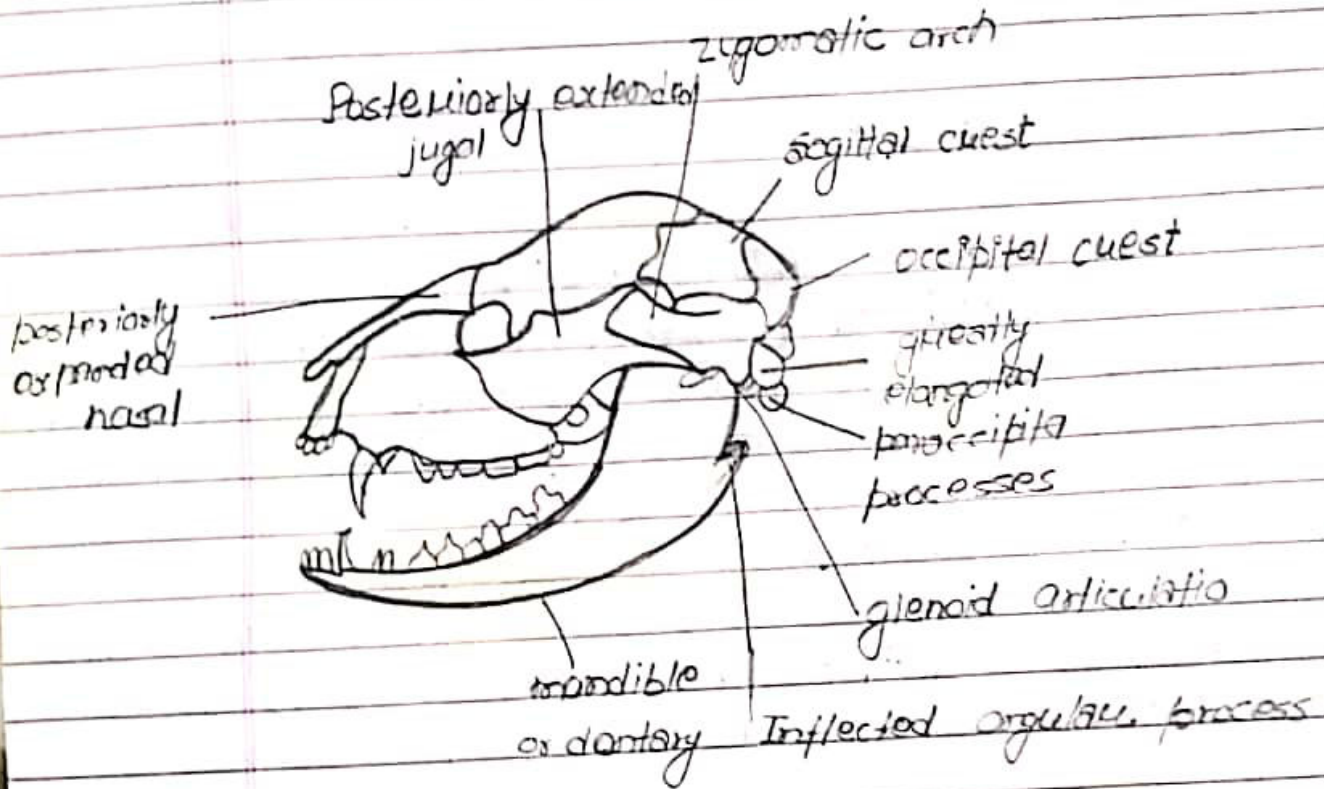 zigomatic arch
Posteriorly extended
jugal
sagittal crest
occipital crest
posteriorly
expanded
nasal
greatly
elangated
paroccipita
processes
glenoid articulatio
mandible
or dantary
Inflected angular process